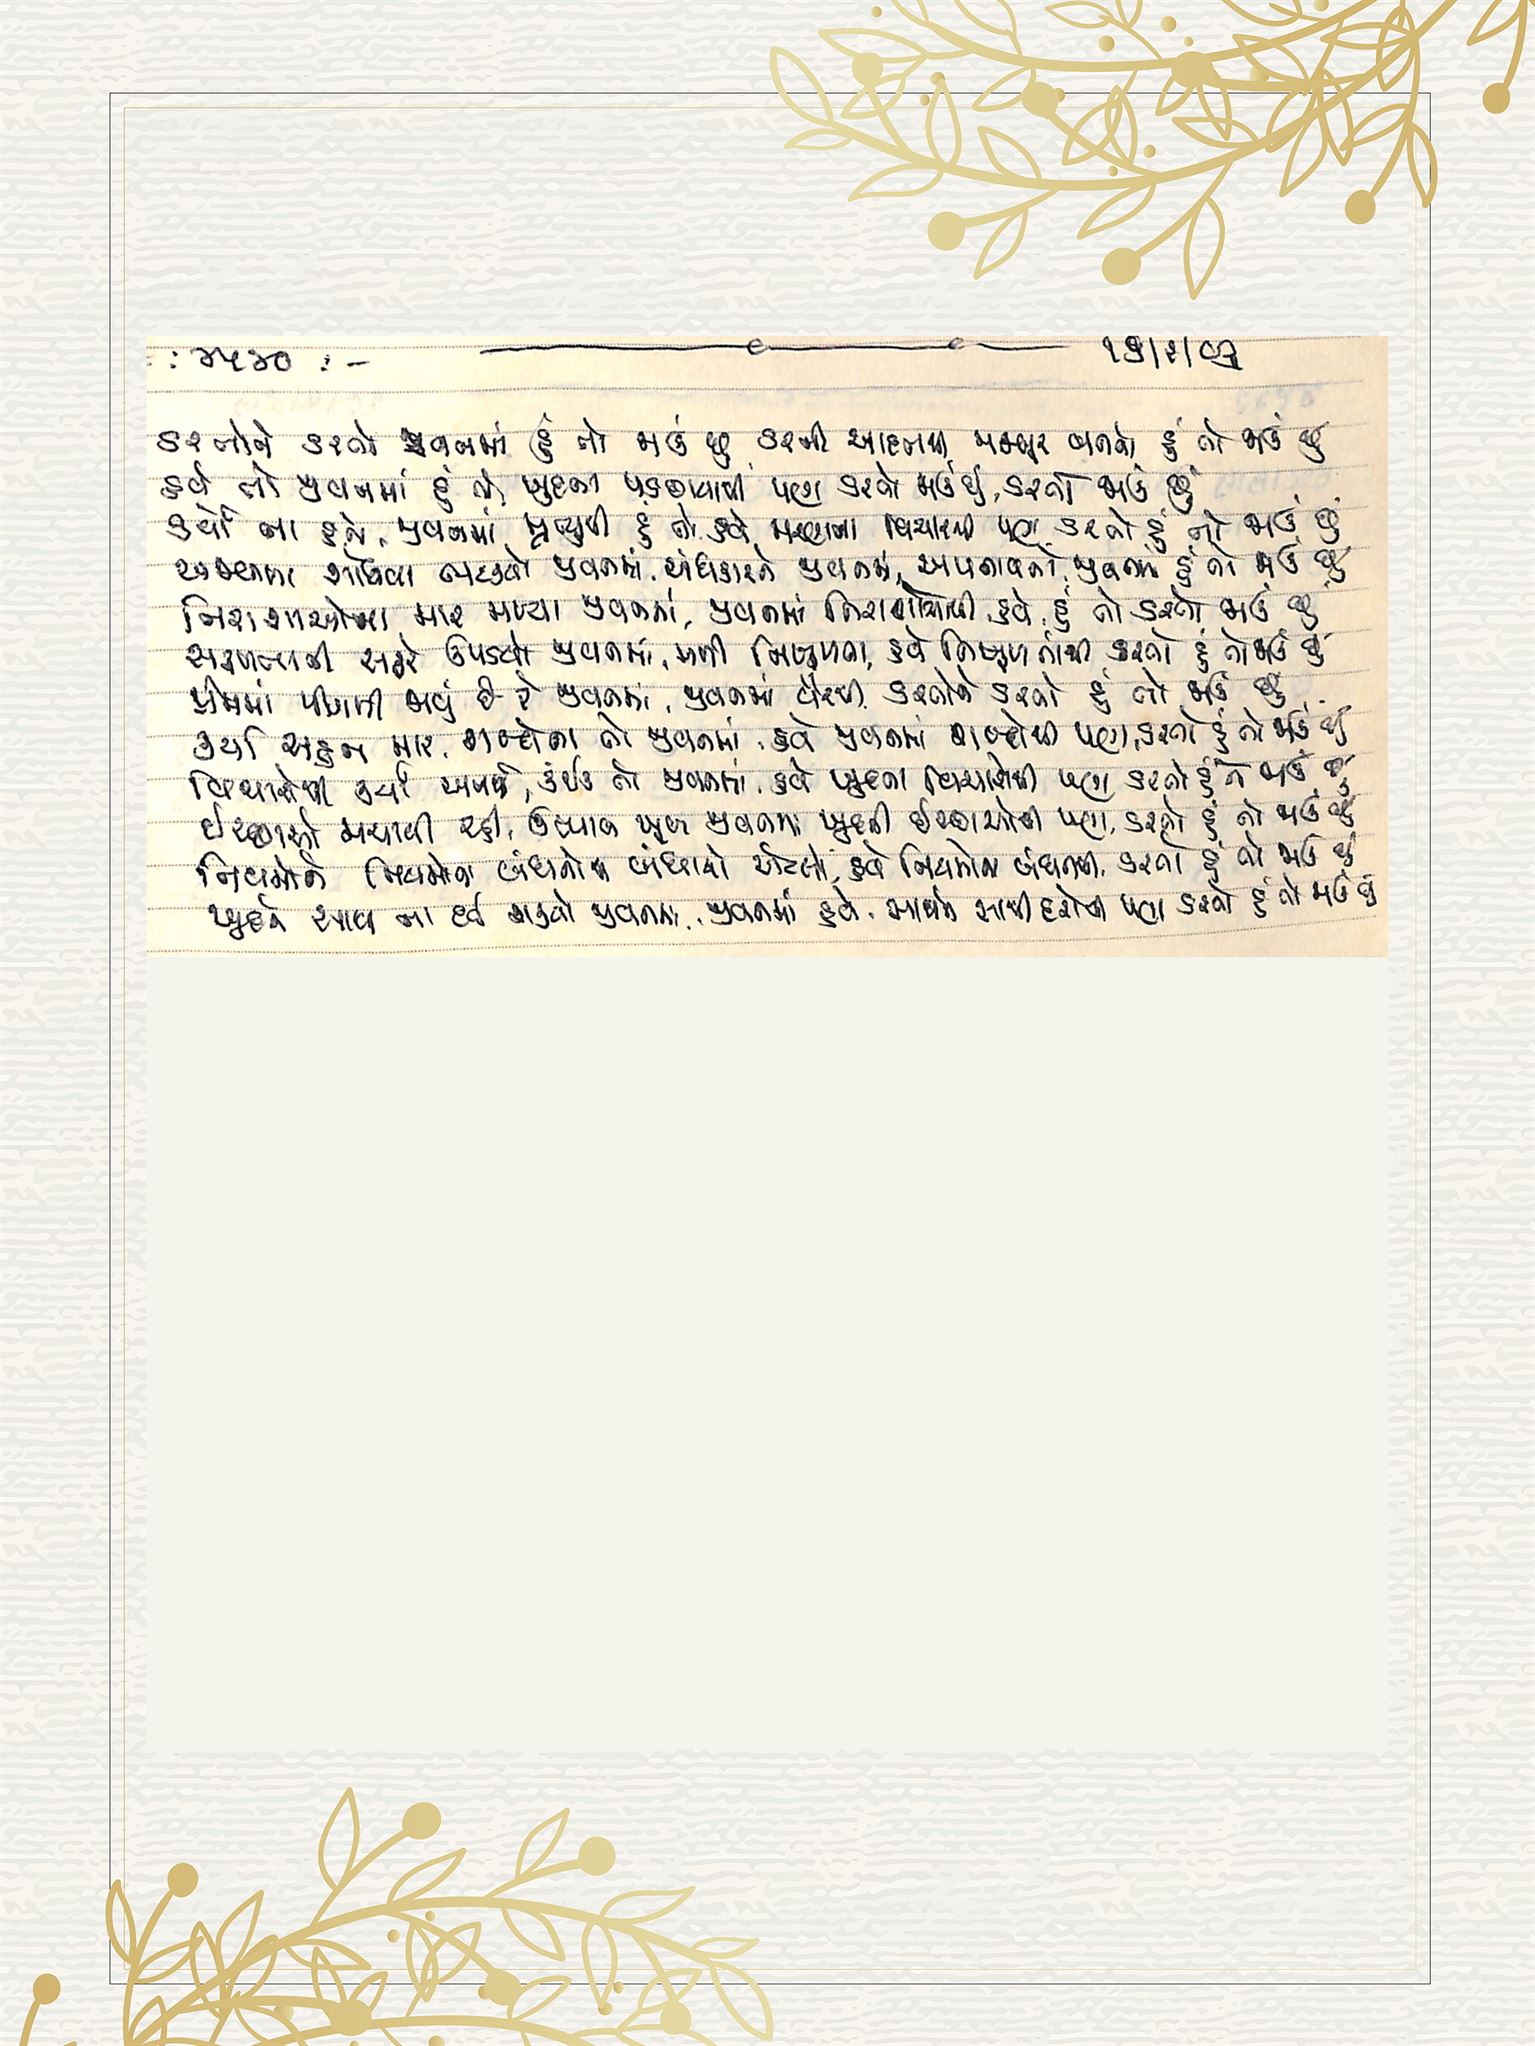 : ૨૫૨૦ : -
ડરતોને ડરતો જીવનમાં હું તો જાઉં છું ડરની આદતથી મજબૂર બનતો હું તો જાઉં છું
હવે તો જીવનમાં હું તો, ખુદના પડછાયાથી પણ ડરતો જાઉં છું, ડરતો જાઉં છું
ડર્યો ના હતો, જીવનમાં મૃત્યુથી હું તો હવે મરણના વિચારથી પણ ડરતો હું તો જાઉં છું
શોધવા ભટક્યો જીવનમાં, અંધકારને જીવનમાં, અપનાવતો, જીવનમાં હું તો જાઉં છું
નિરાશાઓના માર મળ્યા જીવનમાં, જીવનમાં નિરાશાઓથી હવે, હું તો ડરતો જાઉં છું
સફળતાની સફરે ઉપડયો જીવનમાં, મળી નિષ્ફળતા, હવે નિષ્ફળતાથી ડરતો હું તો જાઉં છું
પ્રેમમાં પીગળી જવું છે રે જીવનમાં, જીવનમાં વૈરથી ડરતોને ડરતો હું તો જાઉં છું
કર્યા સહન માર, શબ્દોના તો જીવનમાં, હવે જીવનમાં શબ્દોથી પણ, ડરતો હું તો જાઉં છું
વિચારોથી કર્યા અનર્થ, કંઈક તો જીવનમાં, હવે ખુદના વિચારોથી પણ ડરતો હું તો જાઉં છું
ઈચ્છાઓ મચાવી રહી, ઉત્પાત ખૂબ જીવનમાં ખુદની ઈચ્છાઓથી પણ, ડરતો હું તો જાઉં છું
નિયમોને નિયમોના બંધનોમાં બંધાયો એટલો, હવે નિયમોના બંધનથી, ડરતો હું તો જાઉં છું
ખુદને સાથ ના દઈ શક્યો જીવનમાં, જીવનમાં હવે, સાથને સાથીદારોથી પણ ડરતો હું તો જાઉં છું